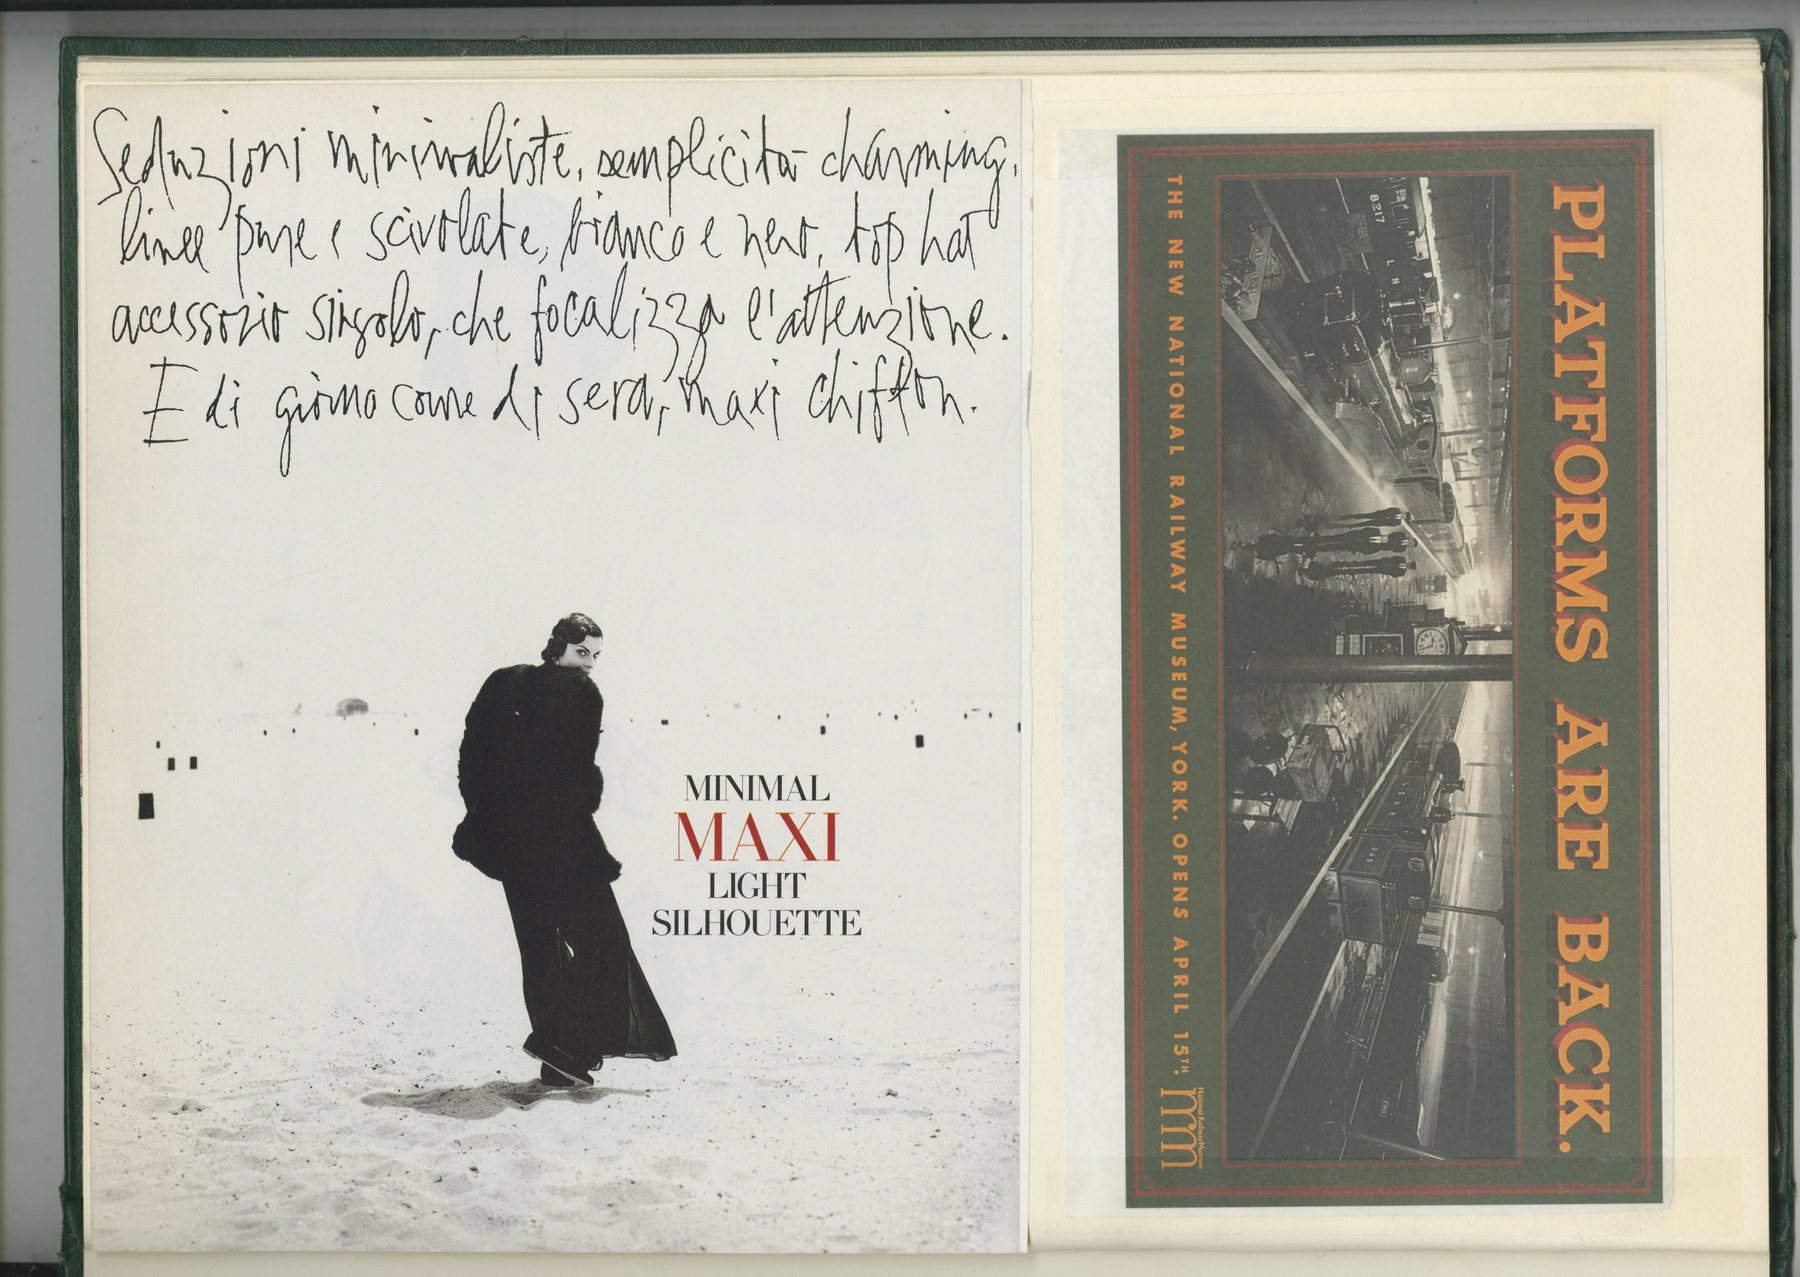 Seduzioni minimaliste, semplicità charming,
linee pure e scivolate, bianco e nero, top hat
accessorio singolo, che focalizza l'attenzione.
E di giorno come di sera, maxi chiffon.
MINIMAL
MAXI
LIGHT
SILHOUETTE
PLATFORMS ARE BACK.
8217
245
THE NEW NATIONAL RAILWAY MUSEUM, YORK. OPENS APRIL 15TH.
National Railway Museum